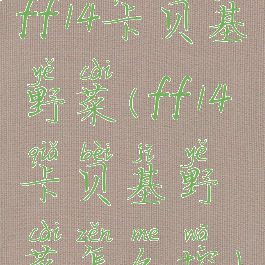 ff14卡贝基
yě cài
野菜(ff14
qiǎ bèi jī yě
卡贝基野
cài zěn me wā
菜怎么挖)